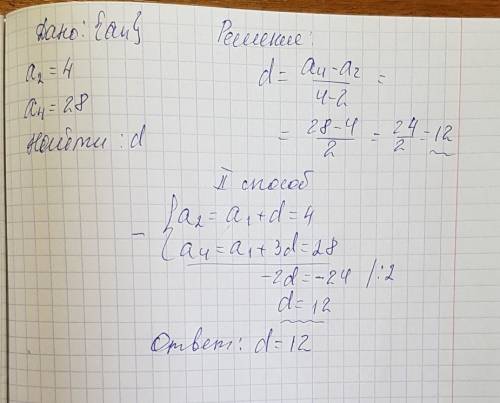 Дано: {an}
a₂ = 4
a₄ = 28
Найти: d
Решение:
d = (a₄ - a₂)/(4 - 2) =
= (28 - 4)/2 = 24/2 = 12
II способ
- { a₂ = a₁ + d = 4
a₄ = a₁ + 3d = 28
-2d = -24 /:2
d = 12
Ответ: d = 12